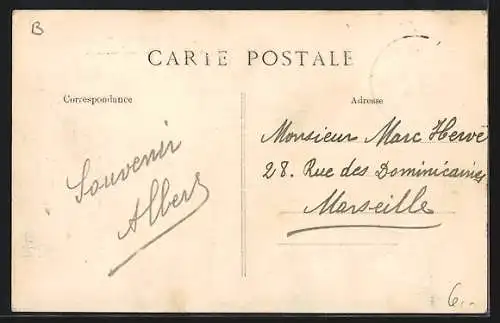 B
CARTE POSTALE
Correspondance
Adresse
Souvenir
Albert
Monsieur Marc Hervé
28. Rue des Dominicaines
Marseille
6,-